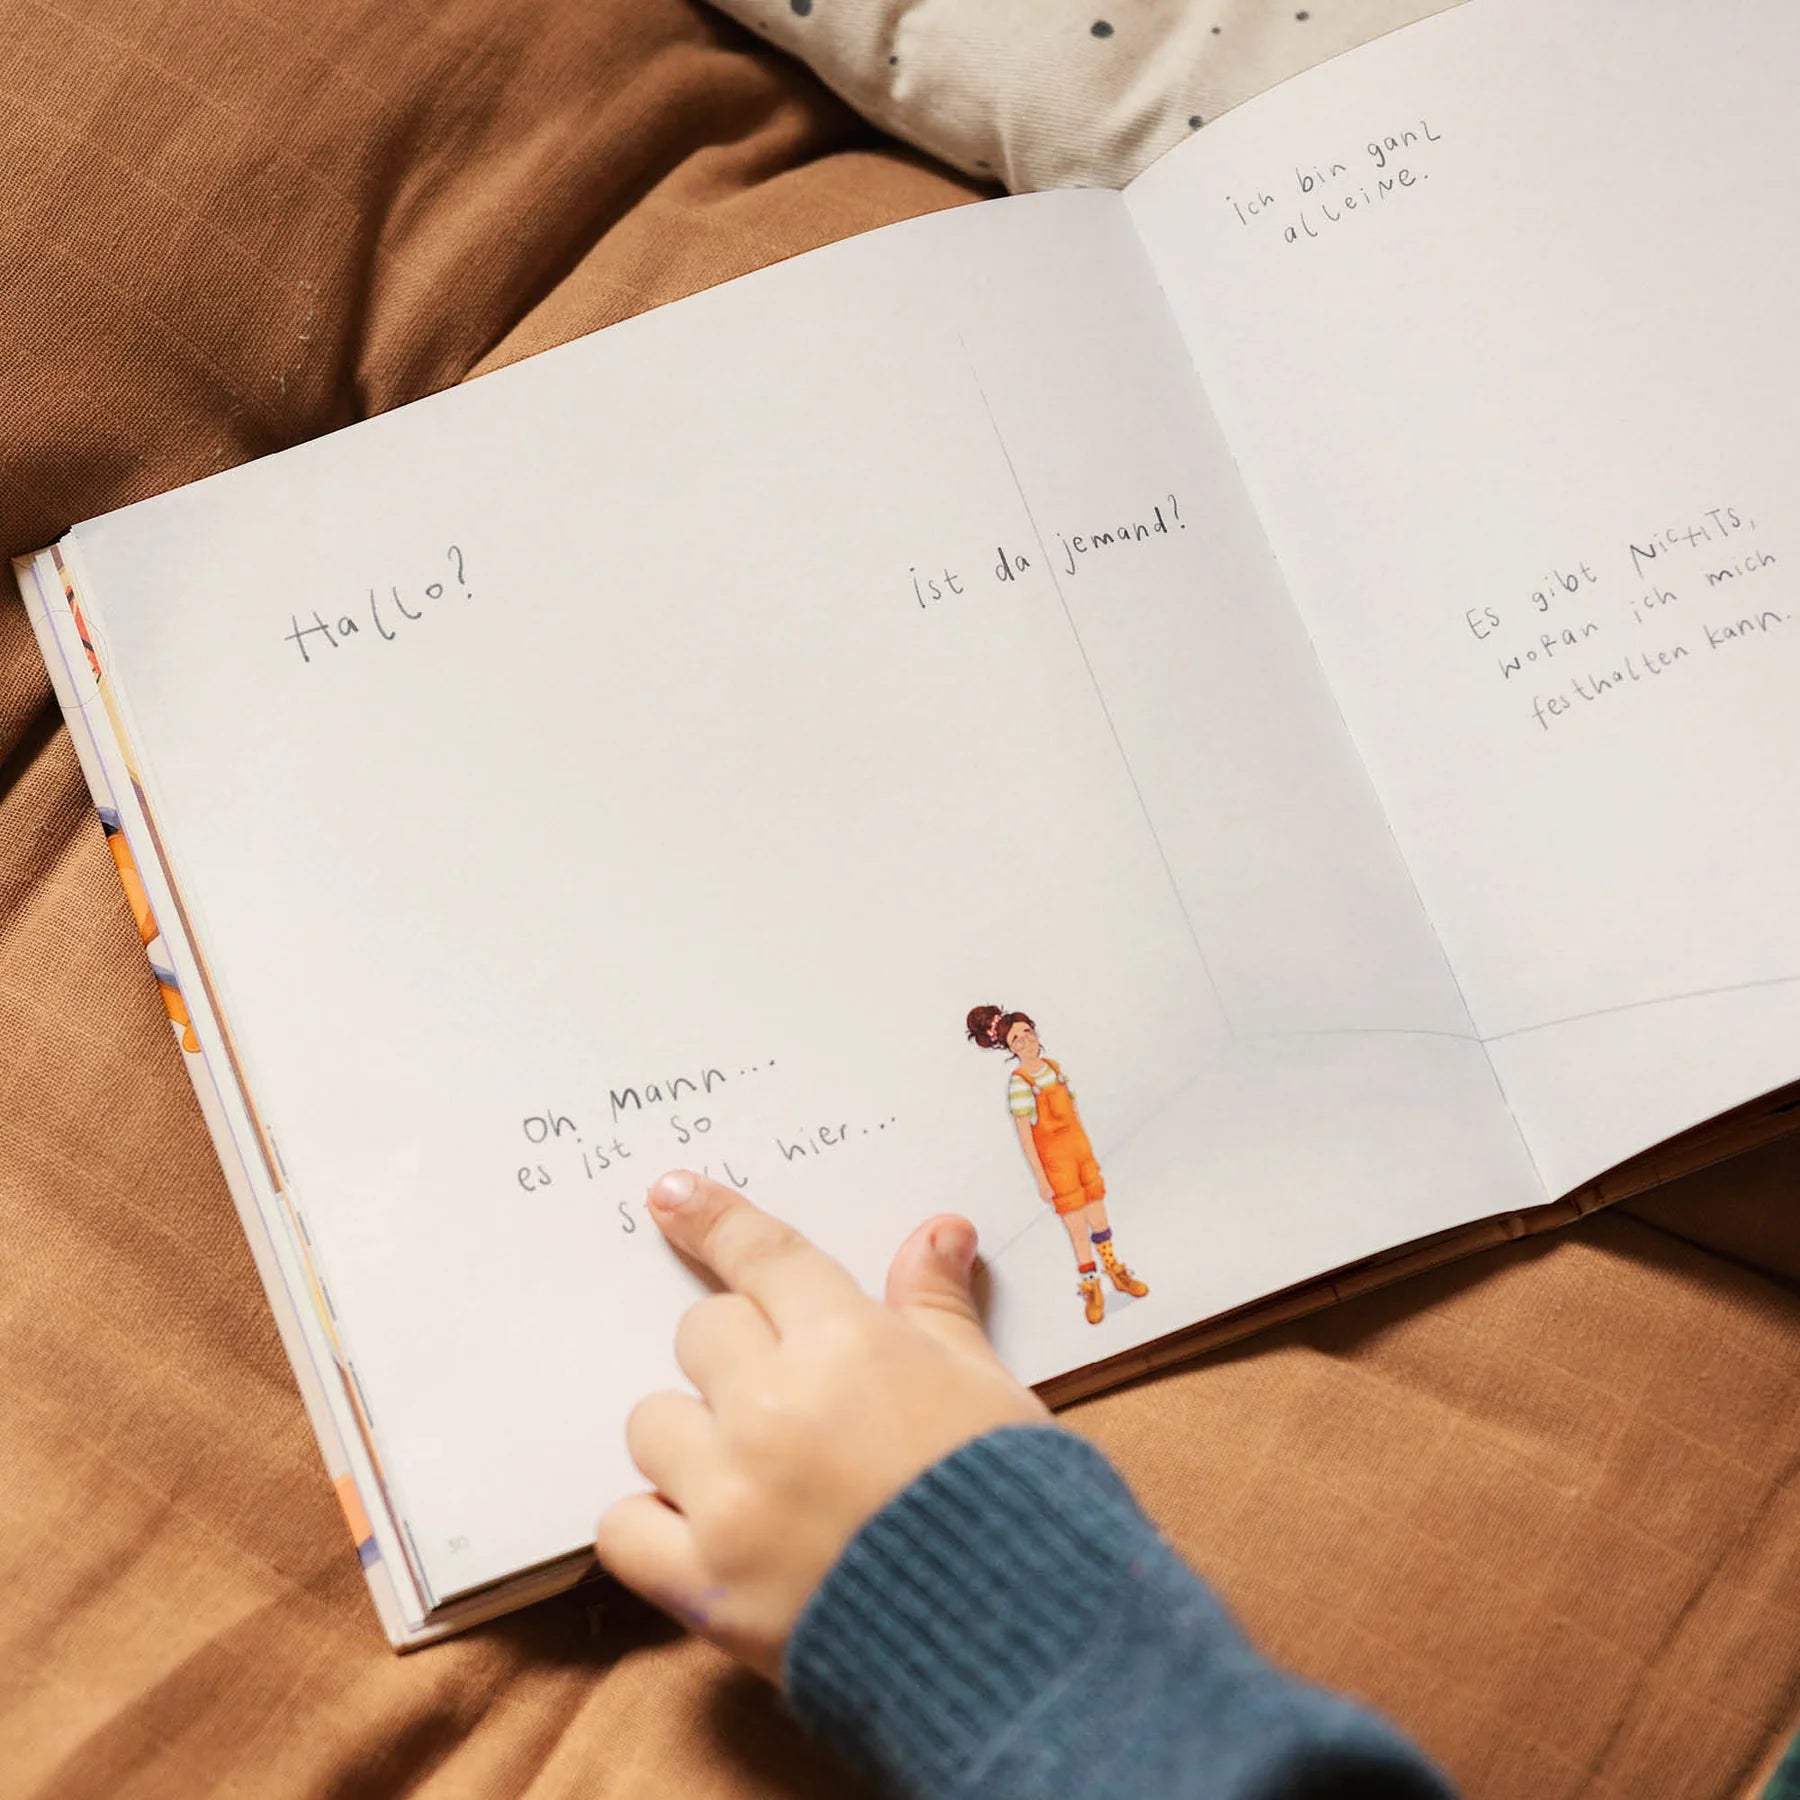 Hallo?
ist da jemand?
Oh Mann...
es ist so
hier...
30
ich bin ganz
alleine.
Es gibt NICHTS,
woran ich mich
festhalten kann.